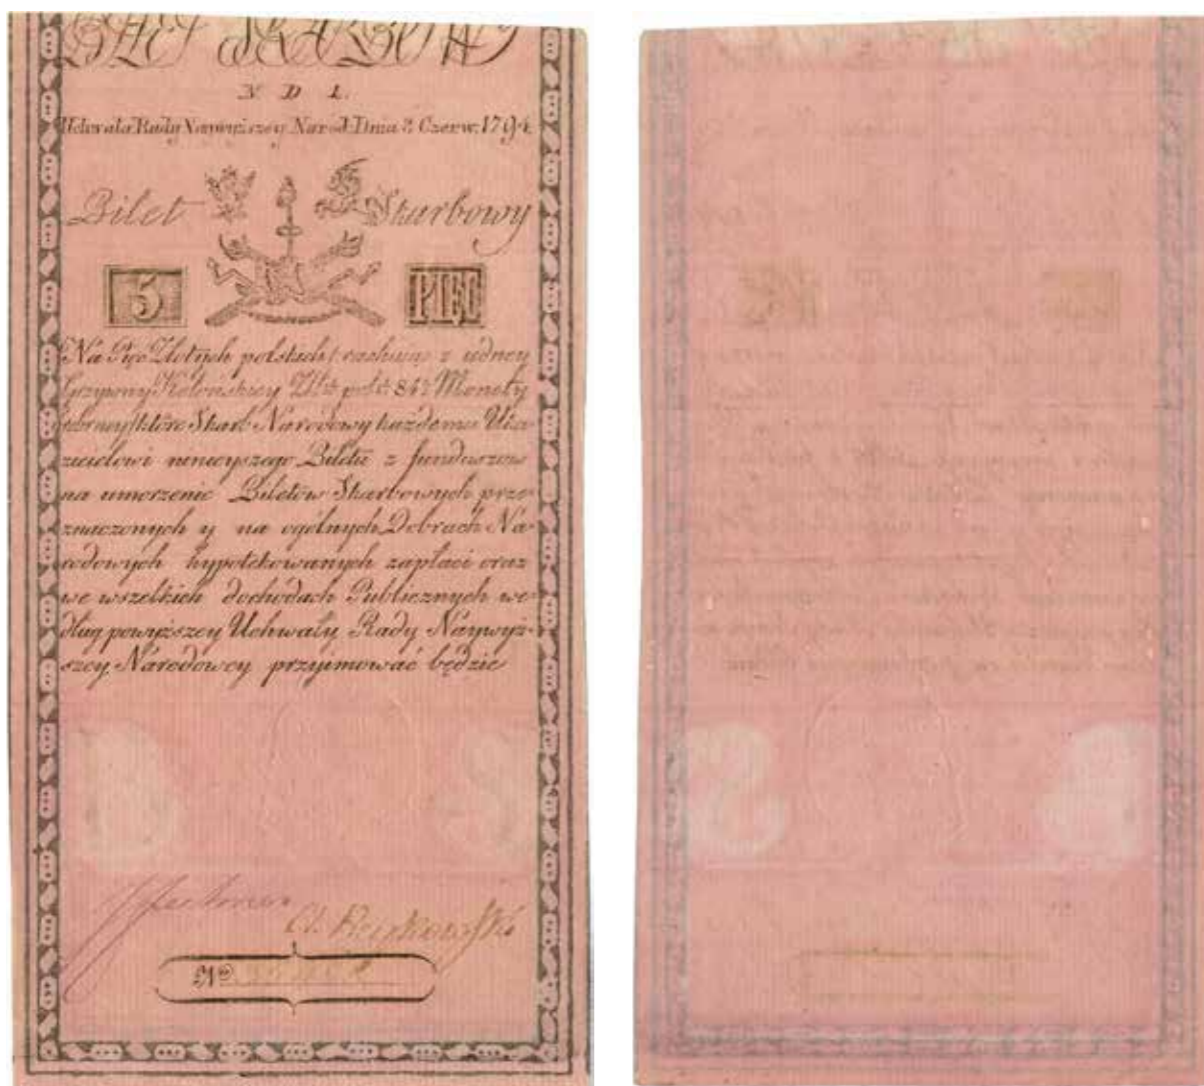 N D 1.
Uchwała Rady Naywyższey Narod: Dnia 8 Czerw: 1794
Bilet Skarbowy
5 PIĘĆ
Na Pięc Złotych polskich rachuiąc z iedney
Grzywny Kolońskiey Złt: pol: 84½ Monety
które Skarb Narodowy każdemu Oka-
zicielowi ninieyszego Biletu z funduszow
na umorzenie Biletów Skarbowych prze-
znaczonych y na ogólnych Dobrach Na-
rodowych hypotekowanych zapłaci oraz
we wszelkich dochodach Publicznych we-
dług powyższey Uchwały Rady Naywyż-
szey Narodowey przyimować będzie
Nº